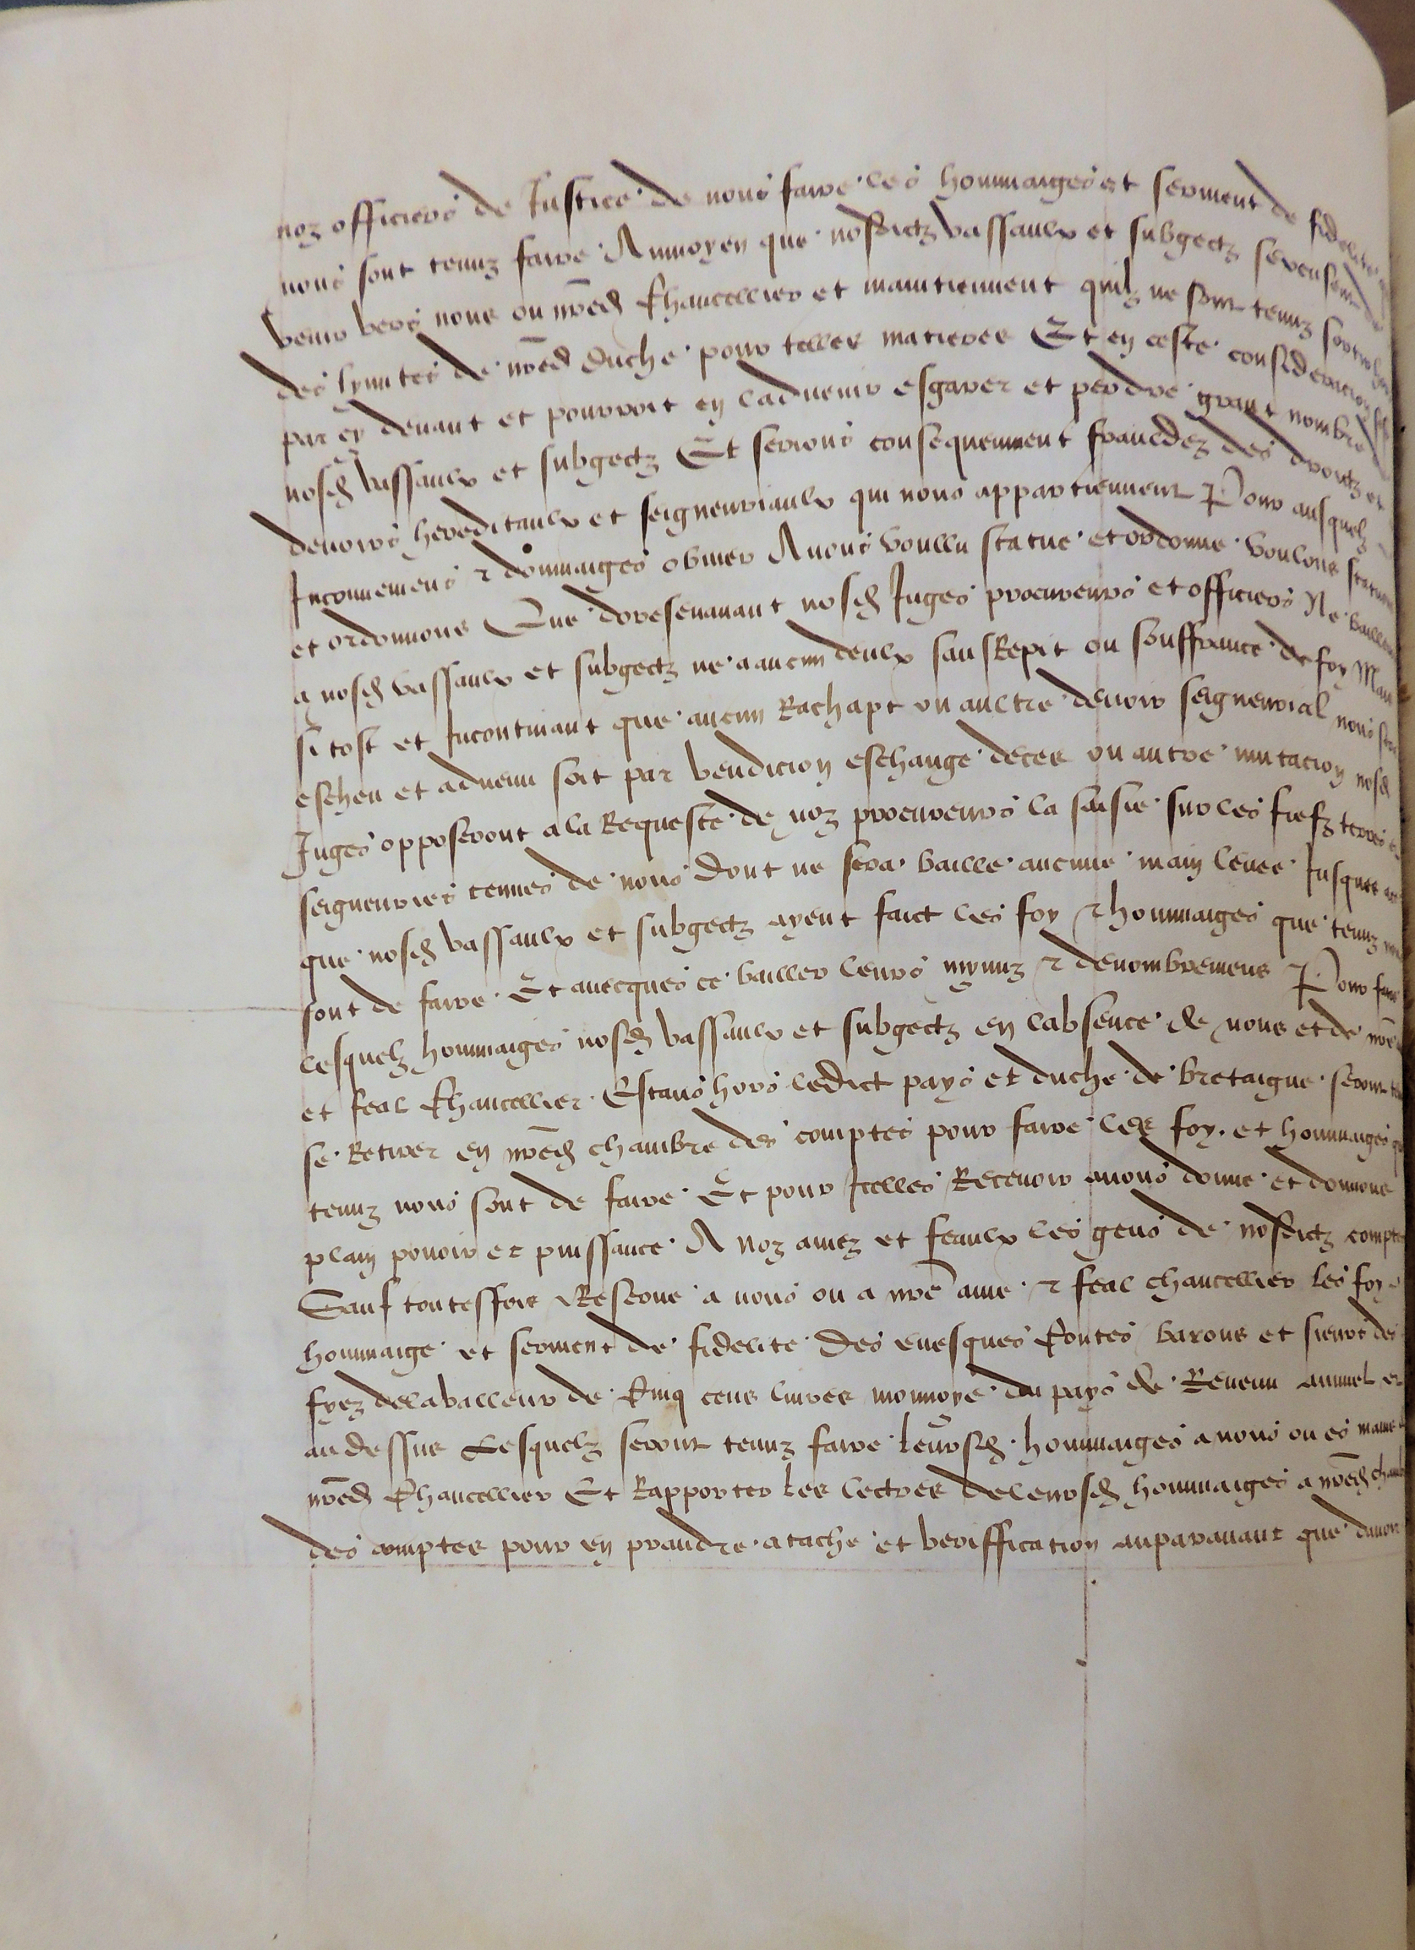 noz officiers de Justice de nous faire les hommaiges et serment de fidelite
nous sont tenuz faire Aumoyen que nosdictz vassaulx et subgectz
venir vers nous ou nr̄ed Chancellier et maintiennent quilz ne sont tenuz sortir
des lymites de nr̄ed duche pour telles matieres Et en ceste consideracion
par cy devant et pourroit en ladvenir esgarer et perdre grant nombre
nosd vassaulx et subgectz Et serions consequemment frauldez des droitz et
devoirs hereditaulx et seigneuriaulx qui nous appartiennent Pour ausquelz
Inconveniens & dommaiges obvier Avons voullu statue et ordonne voulons statuons
et ordonnons Que doresenavant nosd Juges procureurs et officiers Ne baillent
a nosd vassaulx et subgectz ne a aucun deulx sans Respit ou souffrance de foy Mais
si tost et Incontinant que aucun Rachapt ou aultre devoir seigneurial nous sera
escheu et advenu soit par vendicion eschange deces ou autre mutacion nosd
Juges opposeront a la Requeste de noz procureurs la saisie sur les fiefz terres et
seigneuries tenues de nous dont ne sera baille aucune main levee Jusques
que nosd vassaulx et subgectz ayent faict les foy & hommaiges que tenuz
sont de faire Et avecques ce bailler leurs mynuz & denombremens Pour faire
lesquelz hommaiges nosd vassaulx et subgectz en labsence de nous et de nr̄e
et feal Chancellier Estans hors ledict pays et duche de bretaigne seront
se Retirer en nr̄ed chambre des comptes pour faire les foy et hommaiges
tenuz nous sont de faire Et pour Icelles Recevoir avons donne et donnons
plain povoir et puissance A noz amez et feaulx les gens de nosdictz comptes
Sauf toutesfois Reserve a nous ou a nr̄e ame & feal chancellier les foy
hommaige et serment de fidelite des evesques Contes barons et sieurs des
fyez de la valleur de Cinq cens livres monnoye du pays de Revenu annuel et
au dessus Lesquelz seront tenuz faire leursd hommaiges a nous ou es mains
nr̄ed Chancellier Et Rapporter les lectres de leursd hommaiges a nr̄ed chambre
des comptes pour en prandre atache et veriffication auparavant que davoir